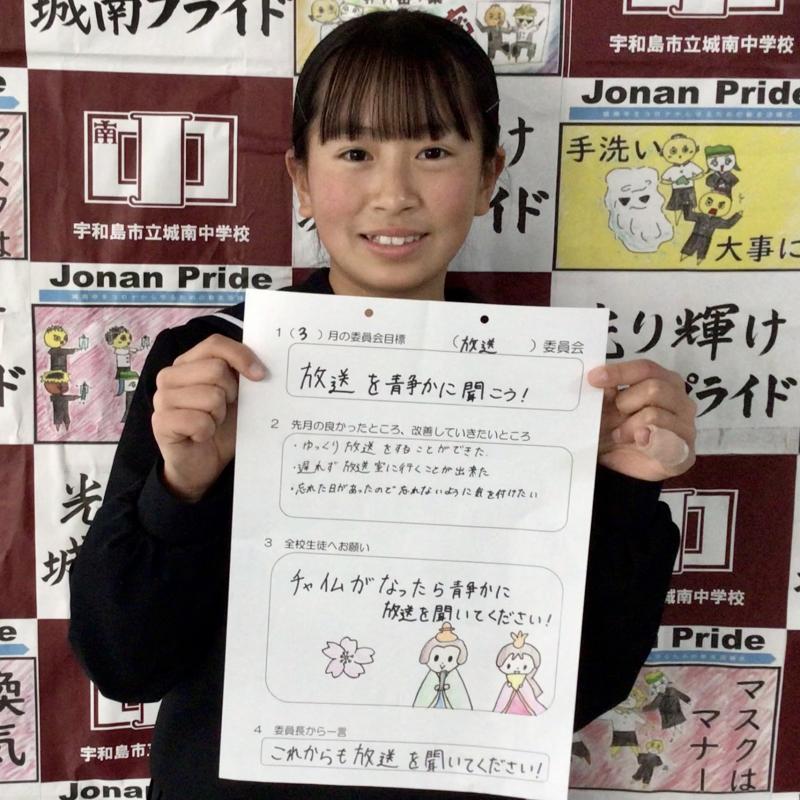 城南プライド
宇和島市立城南中学校
Jonan Pride
南
宇和島市立城南中学校
Jonan Pride
手洗い
大事に
マスクは
Jonan Pride
1 (3)月の委員会目標 (放送)委員会
放送を静かに聞こう!
2 先月の良かったところ、改善していきたいところ
・ゆっくり放送をすることができた
・遅れず放送室に行くことが出来た
・忘れた日があったので忘れないように気を付けたい
3 全校生徒へお願い
チャイムがなったら静かに
放送を聞いてください!
4 委員長から一言
これからも放送を聞いてください!
り輝け
プライド
光
城
城南中学校
Pride
換気
宇和島市立
マスクは
マナー
Jonan Pride